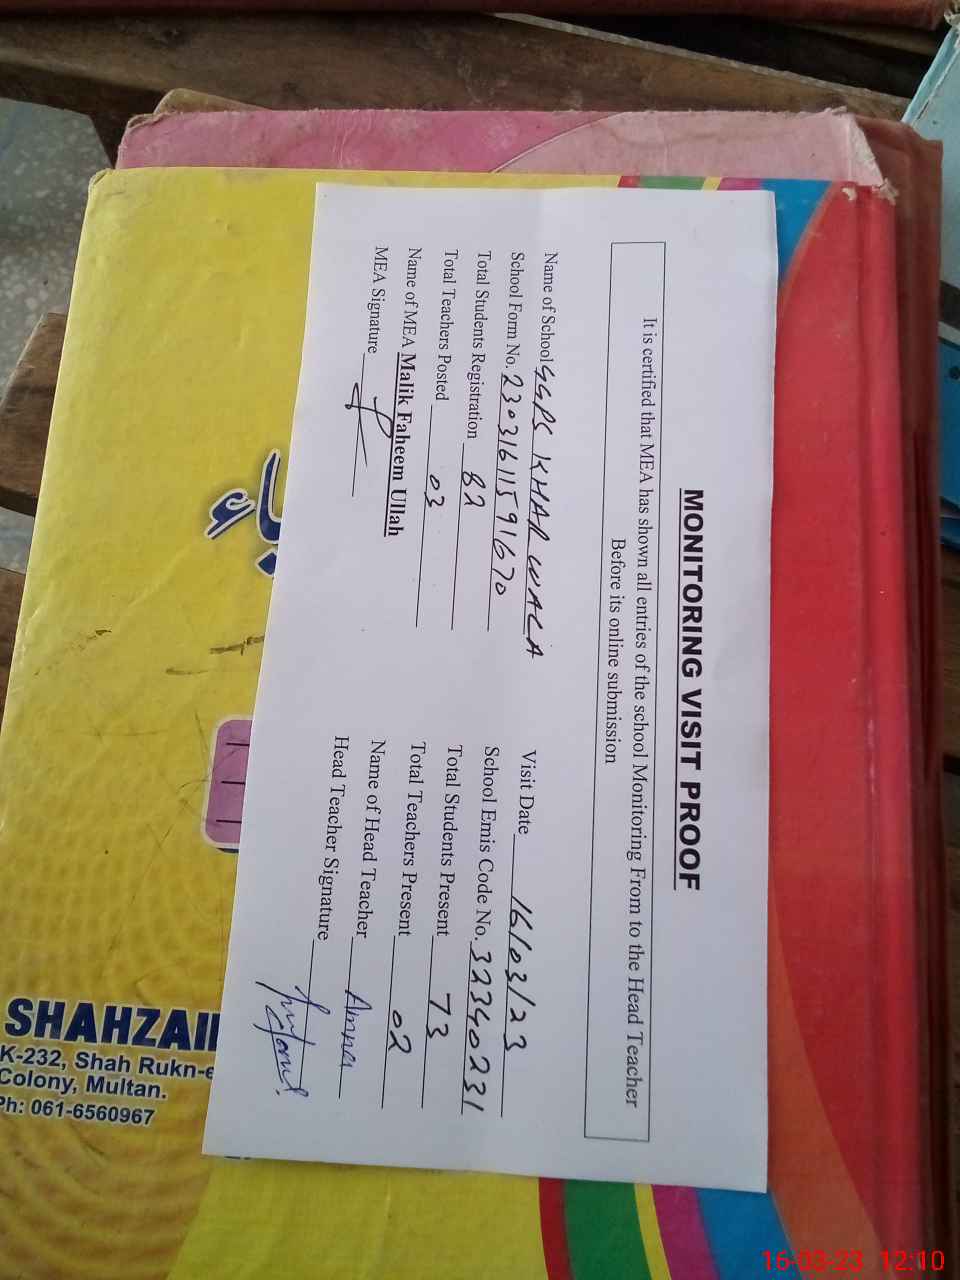 MONITORING VISIT PROOF
It is certified that MEA has shown all entries of the school Monitoring From to the Head Teacher
Before its online submission
Name of School GGPS KHAR WALA
Visit Date 16/03/23
School Form No. 2303161159 1670
School Emis Code No. 32340231
Total Students Registration 82
Total Students Present 73
Total Teachers Posted 03
Total Teachers Present 02
Name of MEA Malik Faheem Ullah
Name of Head Teacher Amna
MEA Signature
Head Teacher Signature
SHAHZAI
K-232, Shah Rukn-e
Colony, Multan.
Ph: 061-6560967
16-03-23 12:10